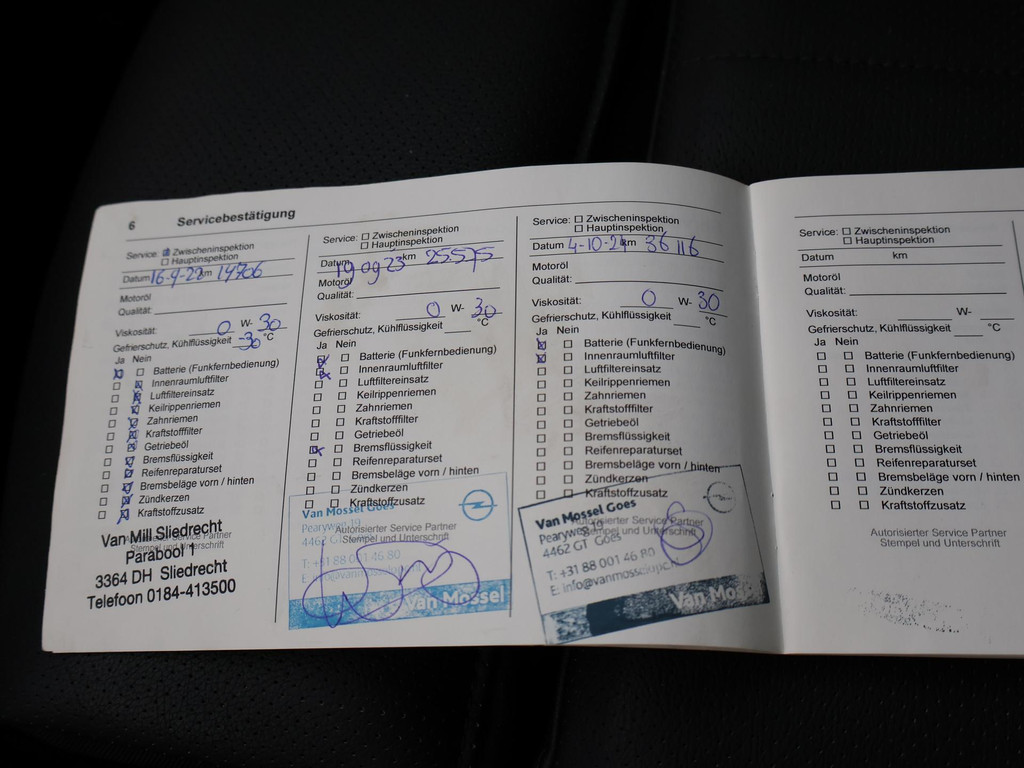 6 Servicebestätigung
Service: Zwischeninspektion
Hauptinspektion
Datum 16-9-22 km 14706
Motoröl
Qualität:
Viskosität: 0 W- 30
Gefrierschutz, Kühlflüssigkeit -30 °C
Ja Nein
Batterie (Funkfernbedienung)
Innenraumluftfilter
Luftfiltereinsatz
Keilrippenriemen
Zahnriemen
Kraftstofffilter
Getriebeöl
Bremsflüssigkeit
Reifenreparaturset
Bremsbeläge vorn / hinten
Zündkerzen
Kraftstoffzusatz
Autorisierter Service Partner
Stempel und Unterschrift
Van Mill Sliedrecht
Parabool 1
3364 DH Sliedrecht
Telefoon 0184-413500
Service: Zwischeninspektion
Hauptinspektion
Datum 19 09 23 km 25575
Motoröl
Qualität:
Viskosität: 0 W- 30
Gefrierschutz, Kühlflüssigkeit °C
Ja Nein
Batterie (Funkfernbedienung)
Innenraumluftfilter
Luftfiltereinsatz
Keilrippenriemen
Zahnriemen
Kraftstofffilter
Getriebeöl
Bremsflüssigkeit
Reifenreparaturset
Bremsbeläge vorn / hinten
Zündkerzen
Kraftstoffzusatz
Autorisierter Service Partner
Stempel und Unterschrift
Van Mossel Goes
Pearyweg 19
4462 GT
T: +31 88 001 46 80
Van Mossel
Service: Zwischeninspektion
Hauptinspektion
Datum 4-10-24 km 36116
Motoröl
Qualität:
Viskosität: 0 W- 30
Gefrierschutz, Kühlflüssigkeit °C
Ja Nein
Batterie (Funkfernbedienung)
Innenraumluftfilter
Luftfiltereinsatz
Keilrippenriemen
Zahnriemen
Kraftstofffilter
Getriebeöl
Bremsflüssigkeit
Reifenreparaturset
Bremsbeläge vorn / hinten
Zündkerzen
Kraftstoffzusatz
Autorisierter Service Partner
Stempel und Unterschrift
Van Mossel Goes
Pearyweg 19
4462 GT Goes
T: +31 88 001 46 80
Van Mossel
Service: Zwischeninspektion
Hauptinspektion
Datum km
Motoröl
Qualität:
Viskosität: W-
Gefrierschutz, Kühlflüssigkeit °C
Ja Nein
Batterie (Funkfernbedienung)
Innenraumluftfilter
Luftfiltereinsatz
Keilrippenriemen
Zahnriemen
Kraftstofffilter
Getriebeöl
Bremsflüssigkeit
Reifenreparaturset
Bremsbeläge vorn / hinten
Zündkerzen
Kraftstoffzusatz
Autorisierter Service Partner
Stempel und Unterschrift